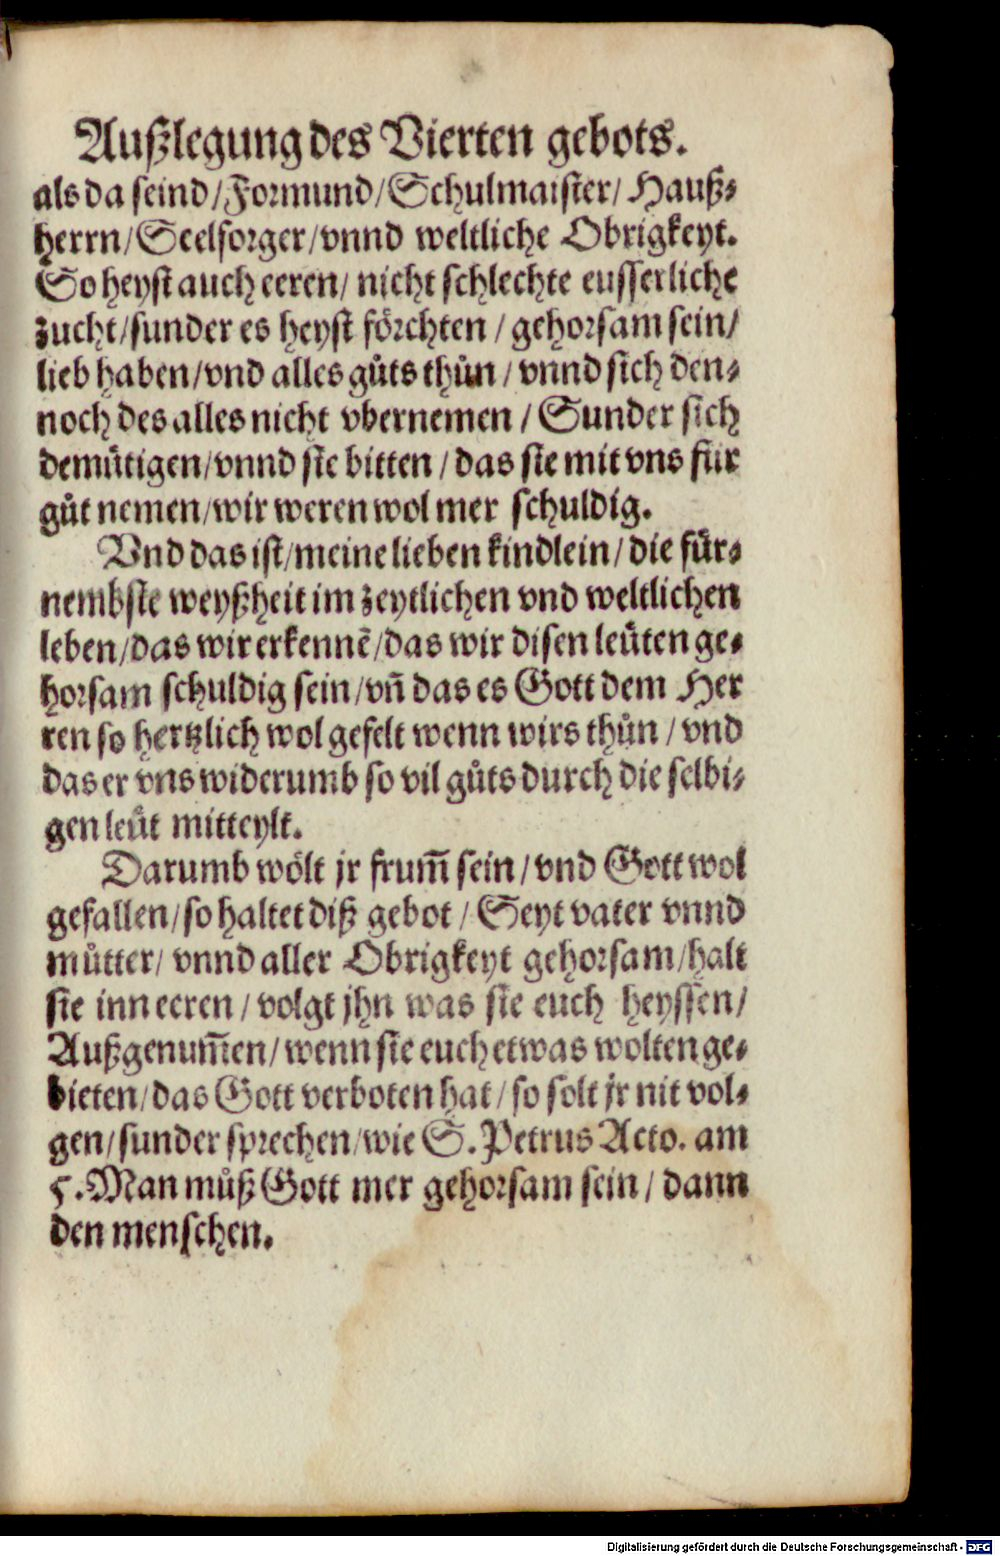 Außlegung des Vierten gebots.
als da seind/Formund/Schulmaister/Hauß⸗
herrn/Seelsorger/vnnd weltliche Obrigkeyt.
So heyst auch eeren/ nicht schlechte eusserliche
zucht/sunder es heyst förchten / gehorsam sein/
lieb haben/vnd alles gůts thůn / vnnd sich den⸗
noch des alles nicht vbernemen / Sunder sich
demütigen/vnnd sie bitten / das sie mit vns für
gůt nemen/wir weren wol mer schuldig.
Vnd das ist/meine lieben kindlein/ die für⸗
nembste weyßheit im zeytlichen vnd weltlichen
leben/das wir erkennē/das wir disen leüten ge⸗
horsam schuldig sein/vñ das es Gott dem Her
ren so hertzlich wol gefelt wenn wirs thůn / vnd
das er vns widerumb so vil gůts durch die selbi⸗
gen leüt mitteylt.
Darumb wölt jr frum̄ sein / vnd Gott wol
gefallen/so haltet diß gebot / Seyt vater vnnd
můtter/ vnnd aller Obrigkeyt gehorsam/halt
sie inn eeren / volgt jhn was sie euch heyssen/
Außgenum̄en/ wenn sie euch etwas wolten ge⸗
bieten/das Gott verboten hat / so solt jr nit vol⸗
gen/sunder sprechen/wie S. Petrus Acto. am
5. Man můß Gott mer gehorsam sein / dann
den menschen.
Digitalisierung gefördert durch die Deutsche Forschungsgemeinschaft - DFG